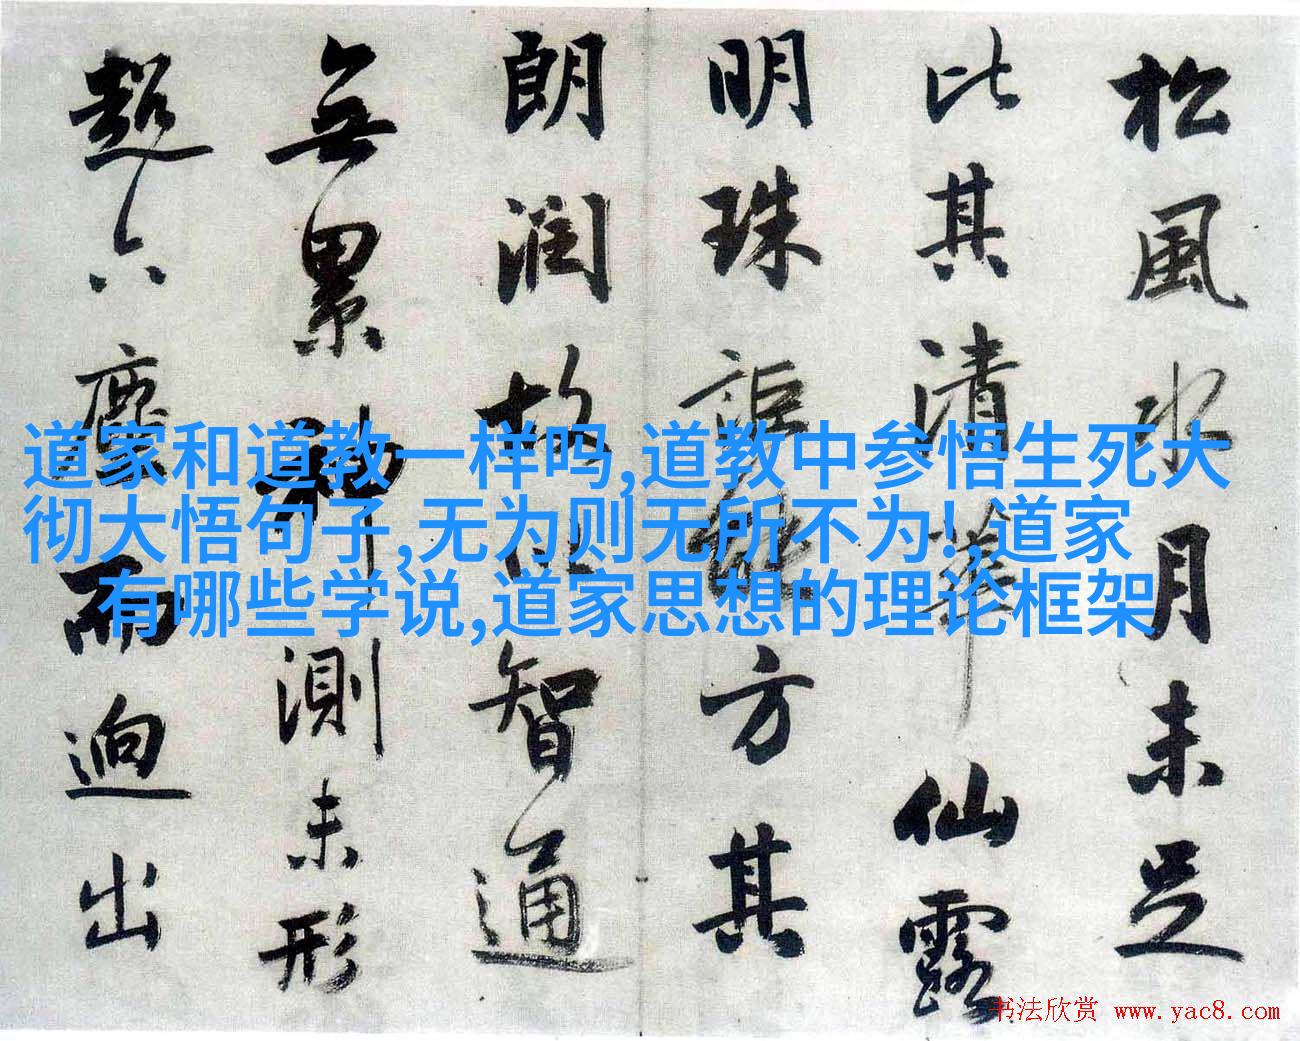 松風水月未足
比其清華仙露
明珠詎能方其
朗潤故以智通
無累神測未形
超六塵而迥出
道家和道教一样吗,道教中参悟生死大
彻大悟句子,无为则无所不为!,道家
有哪些学说,道家思想的理论框架
书法欣赏 www.yac8.com